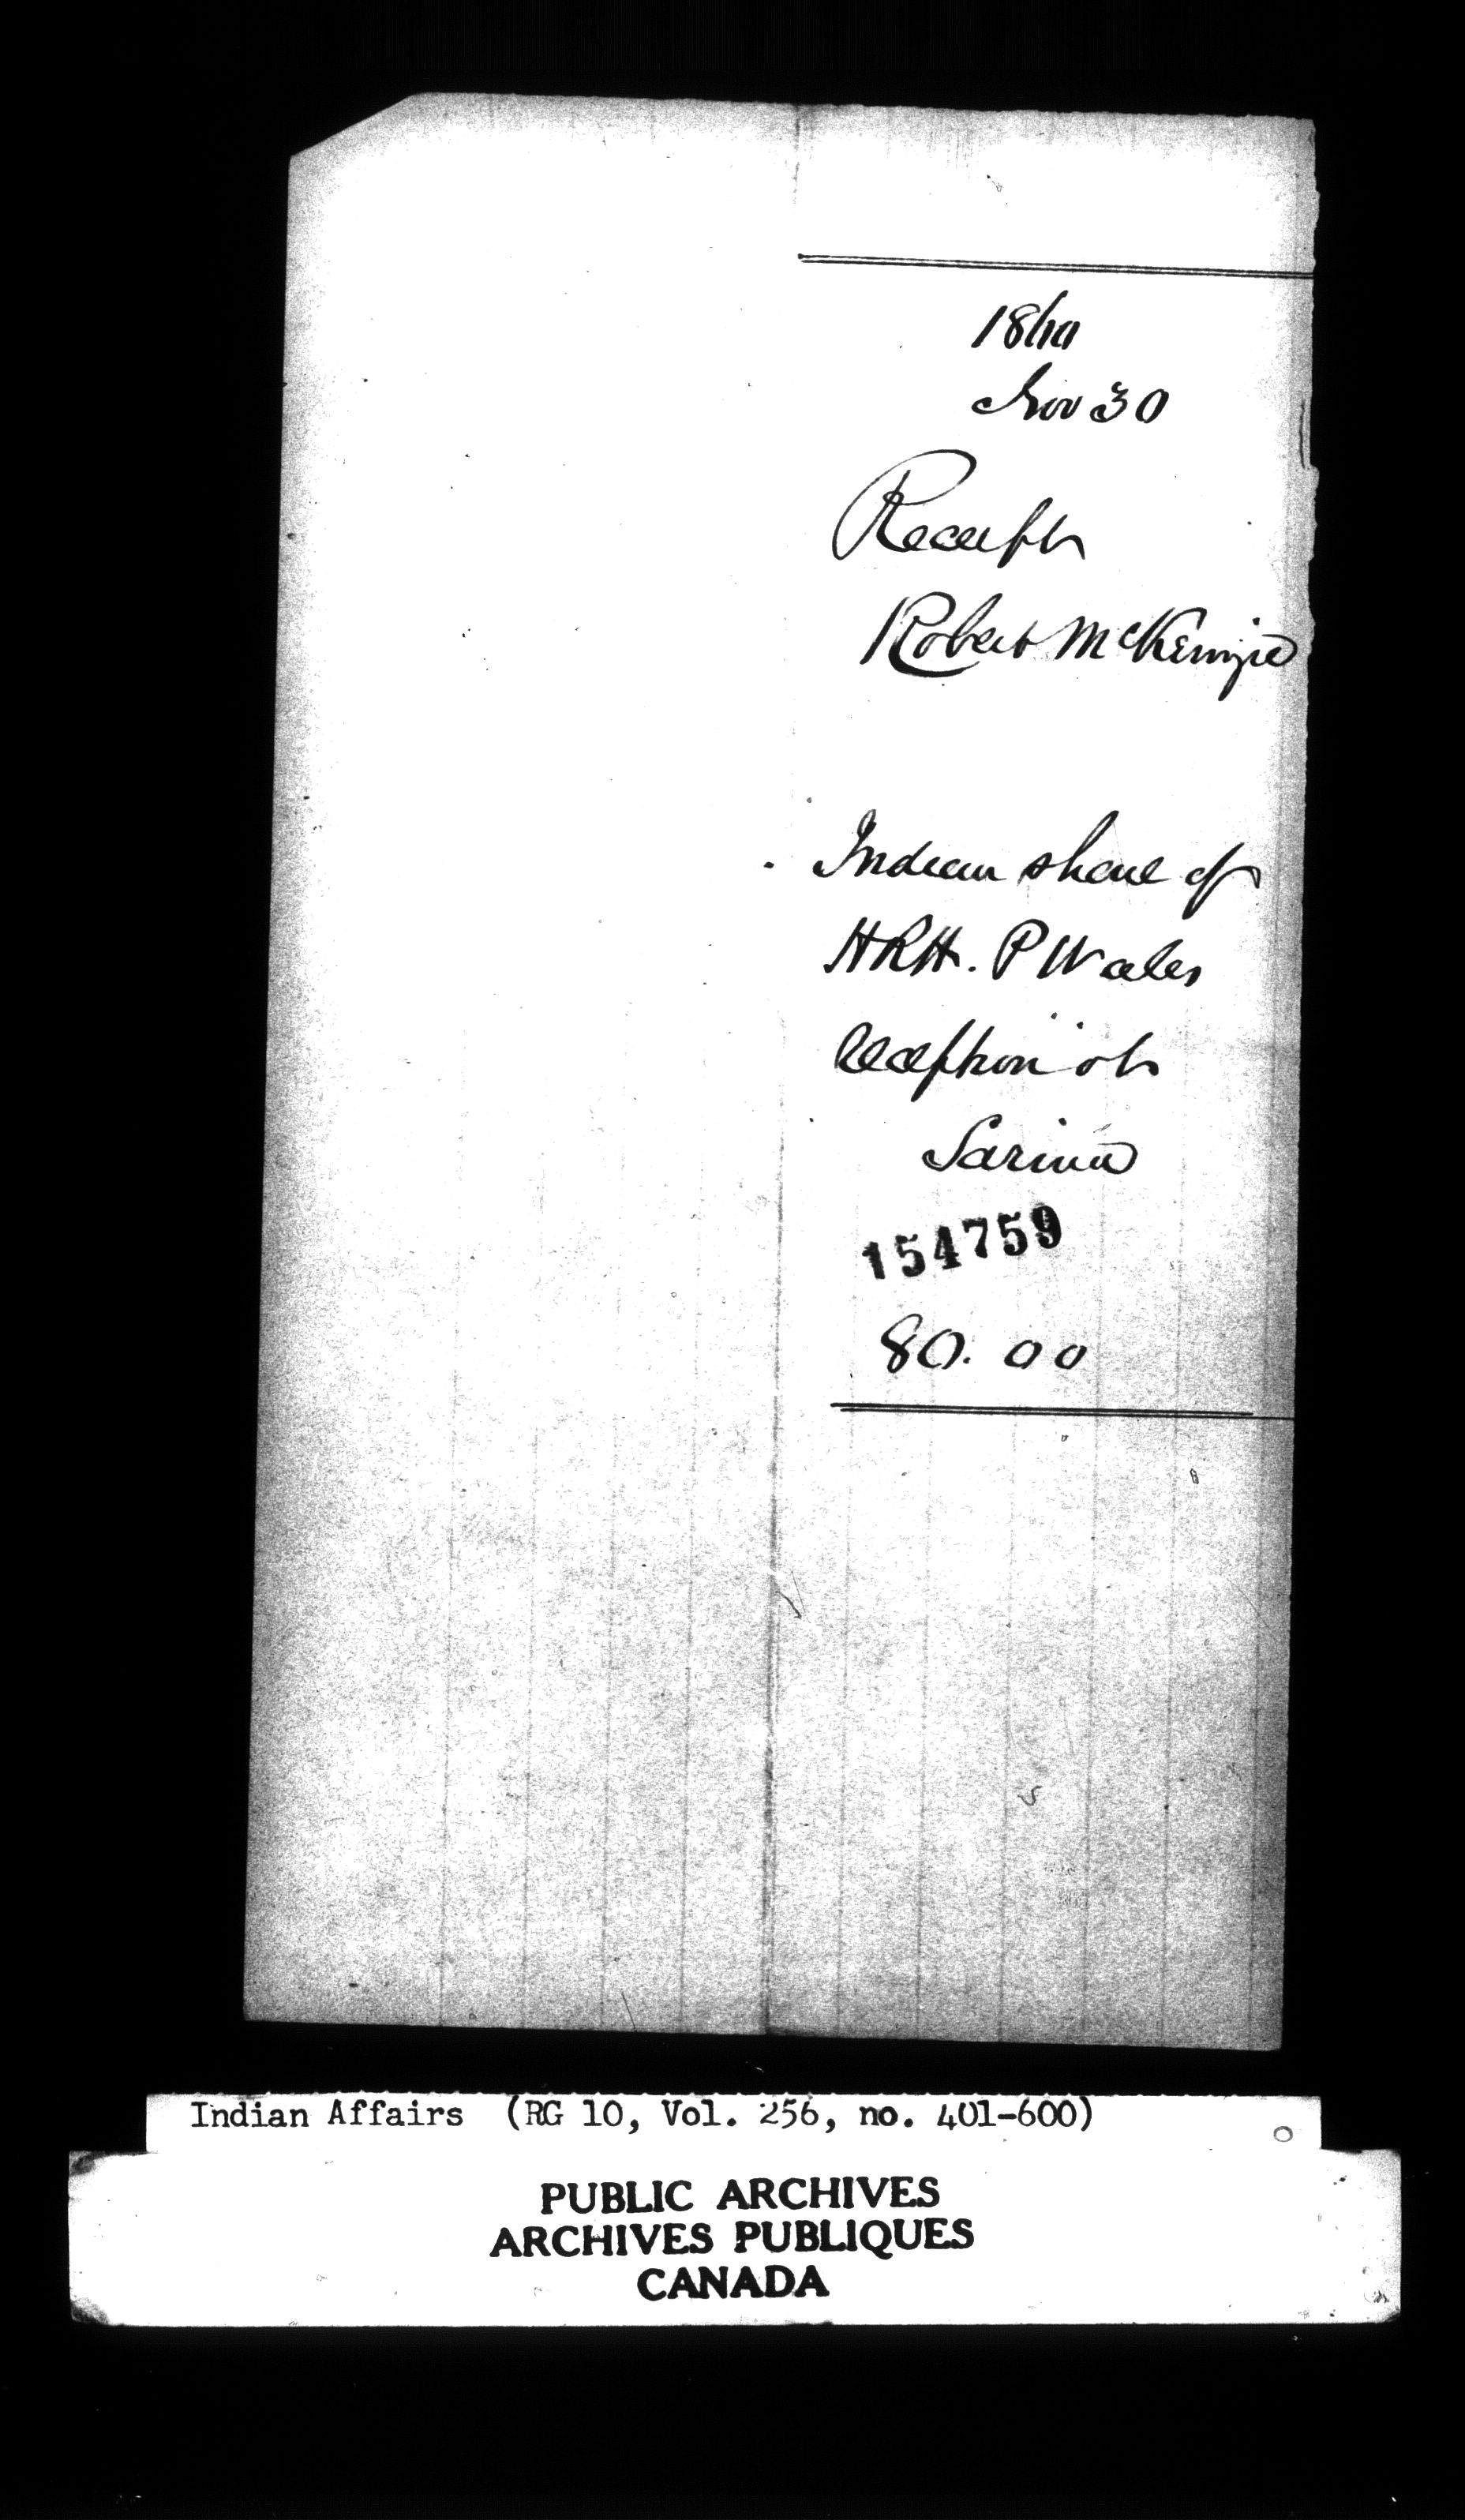 1860
Nov 30
Receipt
Robert McKenzie
Indian share of
HRH. P Wales
reception at
Sarnia
154759
80.00
Indian Affairs (RG 10, Vol. 256, no. 401-600)
PUBLIC ARCHIVES
ARCHIVES PUBLIQUES
CANADA